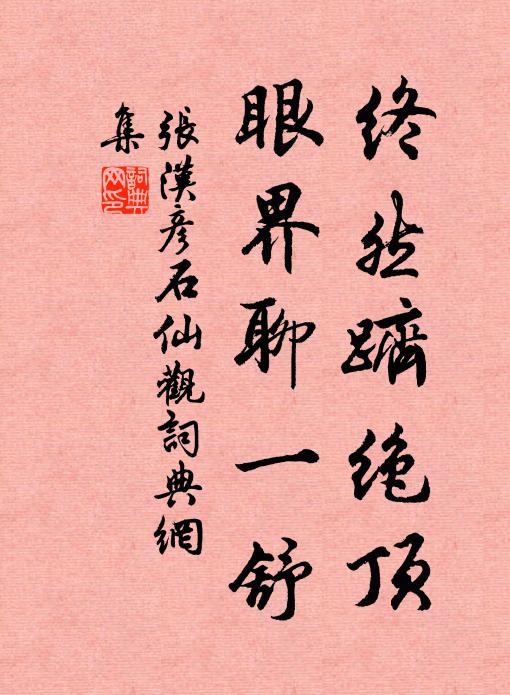 终然躋绝顶
眼界聊一舒
張漢彦石仙觀詞典網
集
詞典
网印